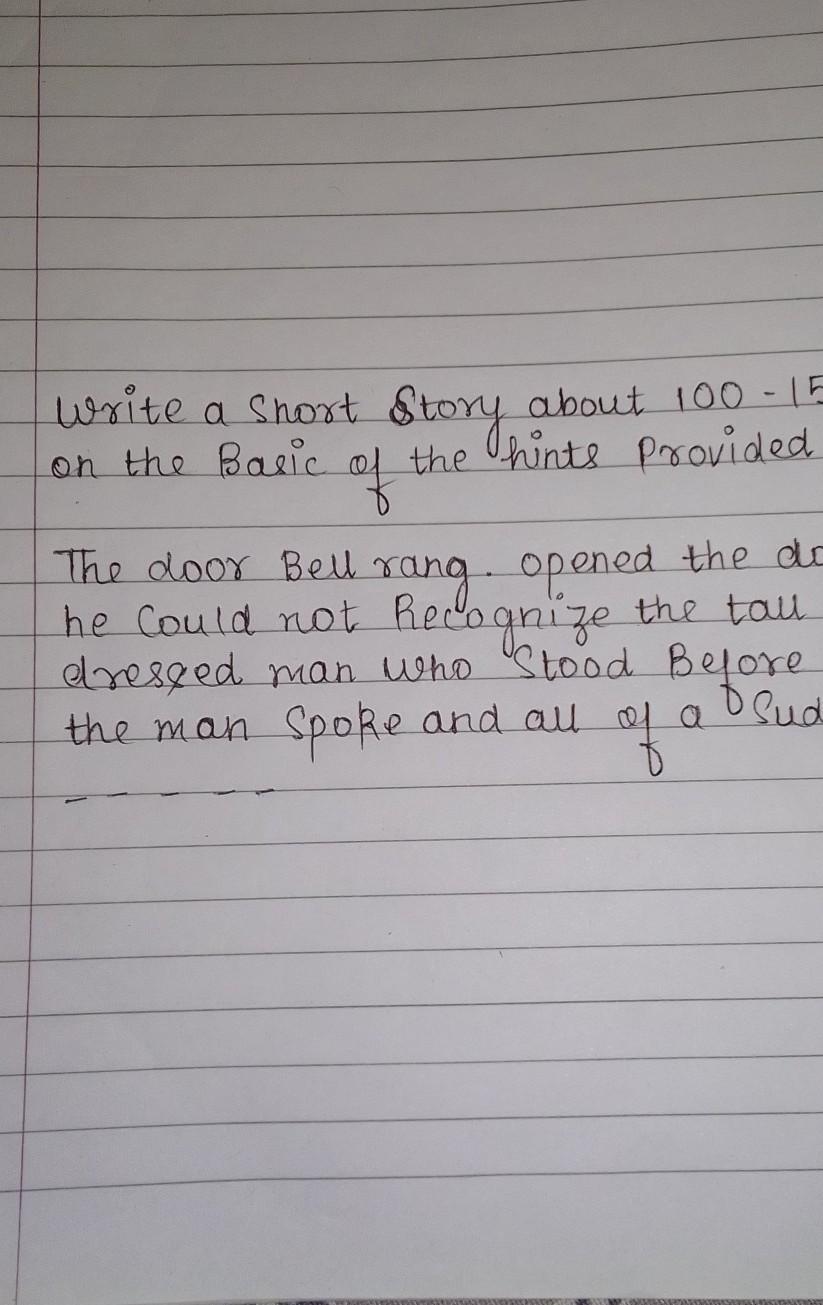 Write a Short Story about 100 - 15
on the Basic of the hints Provided
The door Bell rang. opened the do
he Could not Recognize the tall
dressed man who Stood Before
the man Spoke and all of a Sud
_ _ _ _ _